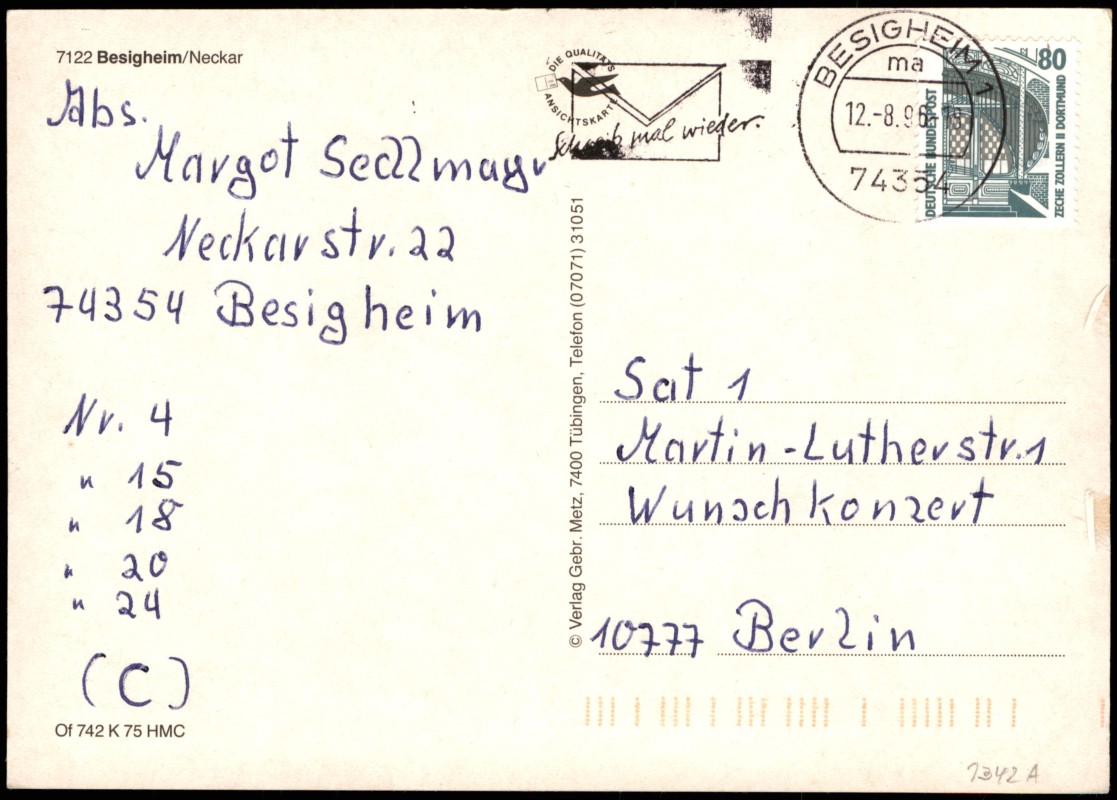 7122 Besigheim/Neckar
Abs.
Margot Sedlmayr
Neckarstr. 22
74354 Besigheim
Nr. 4
" 15
" 18
" 20
" 24
(C)
Of 742 K 75 HMC
© Verlag Gebr. Metz, 7400 Tübingen, Telefon (07071) 31051
DIE QUALITÄTS
ANSICHTSKARTE
Schreib mal wieder.
BESIGHEIM 1
ma
12.-8.96
74354
80
DEUTSCHE BUNDESPOST
ZECHE ZOLLERN II DORTMUND
Sat 1
Martin-Lutherstr. 1
Wunschkonzert
10777 Berlin
1342 A